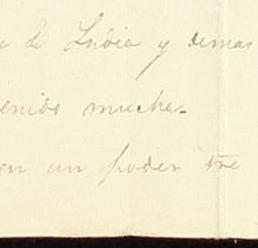 de Lidia y demas
tenido mucha-
con un poder